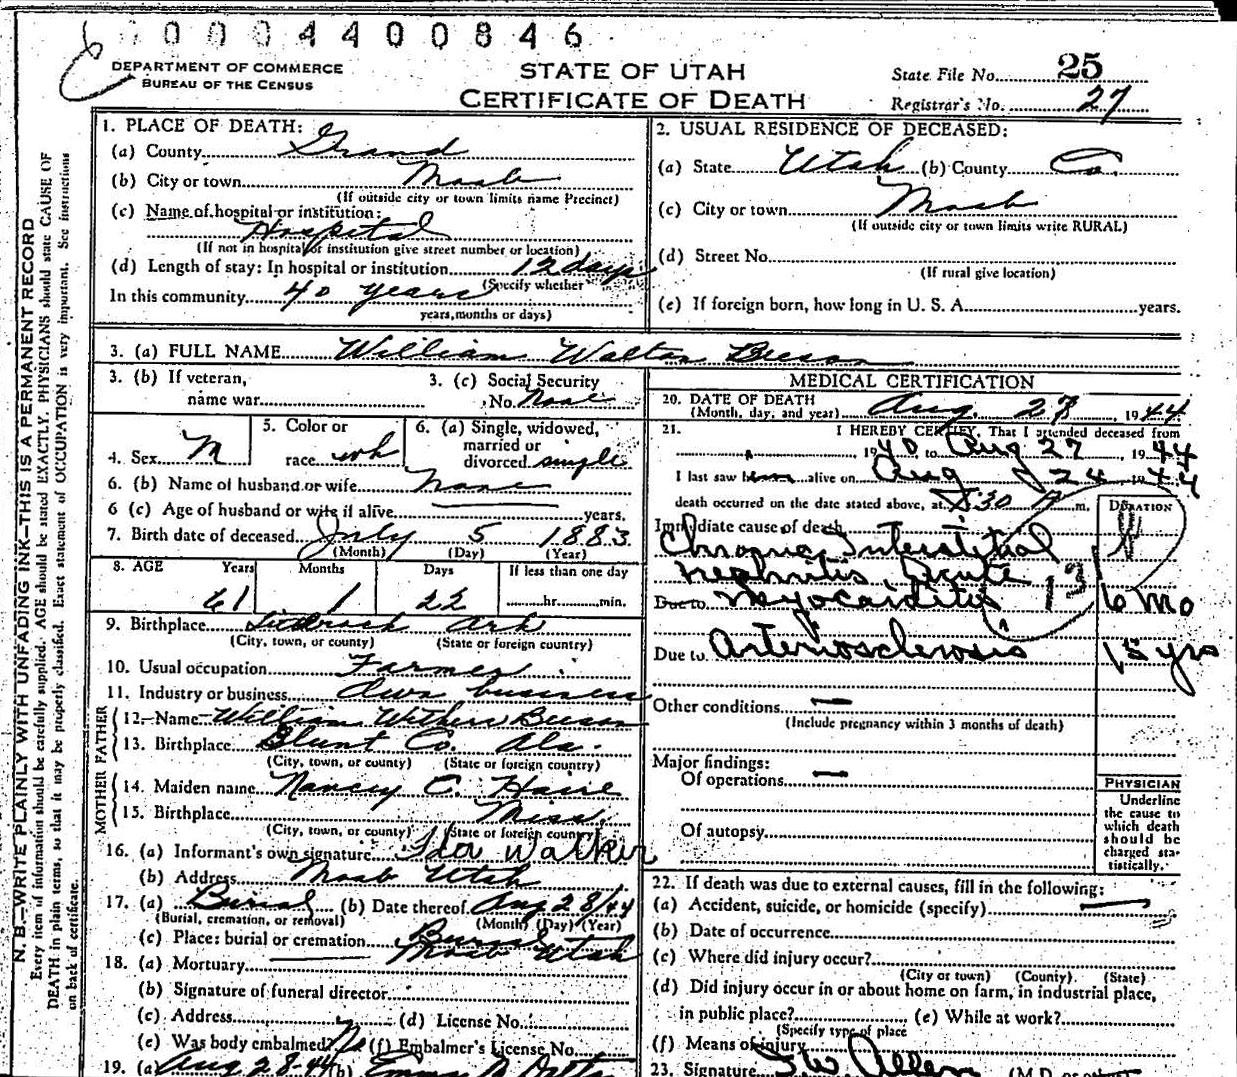 0004400846
DEPARTMENT OF COMMERCE
BUREAU OF THE CENSUS
STATE OF UTAH
CERTIFICATE OF DEATH
State File No. 25
Registrar's No. 27
N. B.—WRITE PLAINLY WITH UNFADING INK—THIS IS A PERMANENT RECORD
Every item of information should be carefully supplied. AGE should be stated EXACTLY. PHYSICIANS should state CAUSE OF
DEATH in plain terms, so that it may be properly classified. Exact statement of OCCUPATION is very important. See instructions
on back of certificate.
1. PLACE OF DEATH:
(a) County Grand
(b) City or town Moab
(If outside city or town limits name Precinct)
(c) Name of hospital or institution:
Hospital
(If not in hospital or institution give street number or location)
(d) Length of stay: In hospital or institution 12 days
(Specify whether
In this community 40 years
years, months or days)
2. USUAL RESIDENCE OF DECEASED:
(a) State Utah (b) County Co.
(c) City or town Moab
(If outside city or town limits write RURAL)
(d) Street No.
(If rural give location)
(e) If foreign born, how long in U. S. A. years.
3. (a) FULL NAME William Walton Beeson
3. (b) If veteran,
name war
3. (c) Social Security
No. None
4. Sex M
5. Color or
race wh
6. (a) Single, widowed,
married or
divorced single
6. (b) Name of husband or wife None
6 (c) Age of husband or wife if alive years.
7. Birth date of deceased July 5 1883
(Month) (Day) (Year)
8. AGE Years Months Days If less than one day
61 1 22 hr. min.
9. Birthplace Ark
(City, town, or county) (State or foreign country)
10. Usual occupation Farmer
11. Industry or business Own business
FATHER
12. Name William Withers Beeson
13. Birthplace Blunt Co. Ala.
(City, town, or county) (State or foreign country)
MOTHER
14. Maiden name Nancy C. Haire
15. Birthplace Miss.
(City, town, or county) (State or foreign country)
16. (a) Informant's own signature Ida Walker
(b) Address Moab Utah
17. (a) Burial (b) Date thereof Aug 28/44
(Burial, cremation, or removal) (Month) (Day) (Year)
(c) Place: burial or cremation Burial
Moab Utah
18. (a) Mortuary
(b) Signature of funeral director
(c) Address (d) License No.
(e) Was body embalmed? No (f) Embalmer's License No.
19. (a) Aug 28-44 (b)
MEDICAL CERTIFICATION
20. DATE OF DEATH
(Month, day, and year) Aug. 27, 1944
21. I HEREBY CERTIFY, That I attended deceased from
, 1940 to Aug 27, 1944
I last saw him alive on Aug 24 1944
death occurred on the date stated above, at 8:30 m.
DURATION
Immediate cause of death
Chronic Interstitial
Nephritis, Acute
131
Due to Myocarditis 6 mo
Due to Arteriosclerosis 15 yrs
Other conditions —
(Include pregnancy within 3 months of death)
Major findings:
Of operations —
Of autopsy
PHYSICIAN
Underline
the cause to
which death
should be
charged sta-
tistically.
22. If death was due to external causes, fill in the following:
(a) Accident, suicide, or homicide (specify) —
(b) Date of occurrence
(c) Where did injury occur?
(City or town) (County) (State)
(d) Did injury occur in or about home on farm, in industrial place,
in public place? (e) While at work?
(Specify type of place
(f) Means of injury
23. Signature I W Allen (M.D. or other)